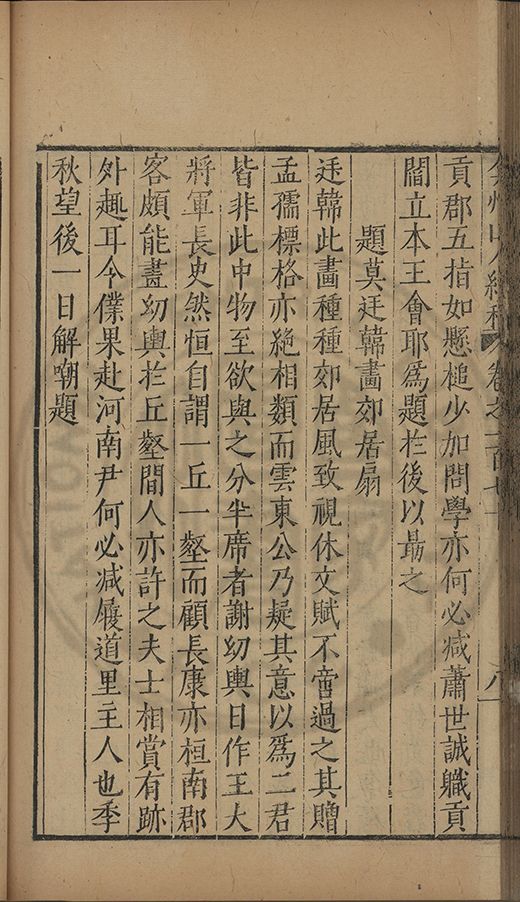 弇州山人續稿 卷之一百七十 八
貢郡五指如懸槌少加問學亦何必減蕭世誠職貢
閻立本王會耶爲題於後以勗之
題莫廷韓畫郊居扇
廷韓此畫種種郊居風致視休文賦不啻過之其贈
孟孺標格亦絶相類而雲東公乃疑其意以爲二君
皆非此中物至欲與之分半席者謝幼輿日作王大
將軍長史然恒自謂一丘一壑而顧長康亦桓南郡
客頗能畫幼輿於丘壑間人亦許之夫士相賞有跡
外趣耳今僕果赴河南尹何必減履道里主人也季
秋望後一日解嘲題